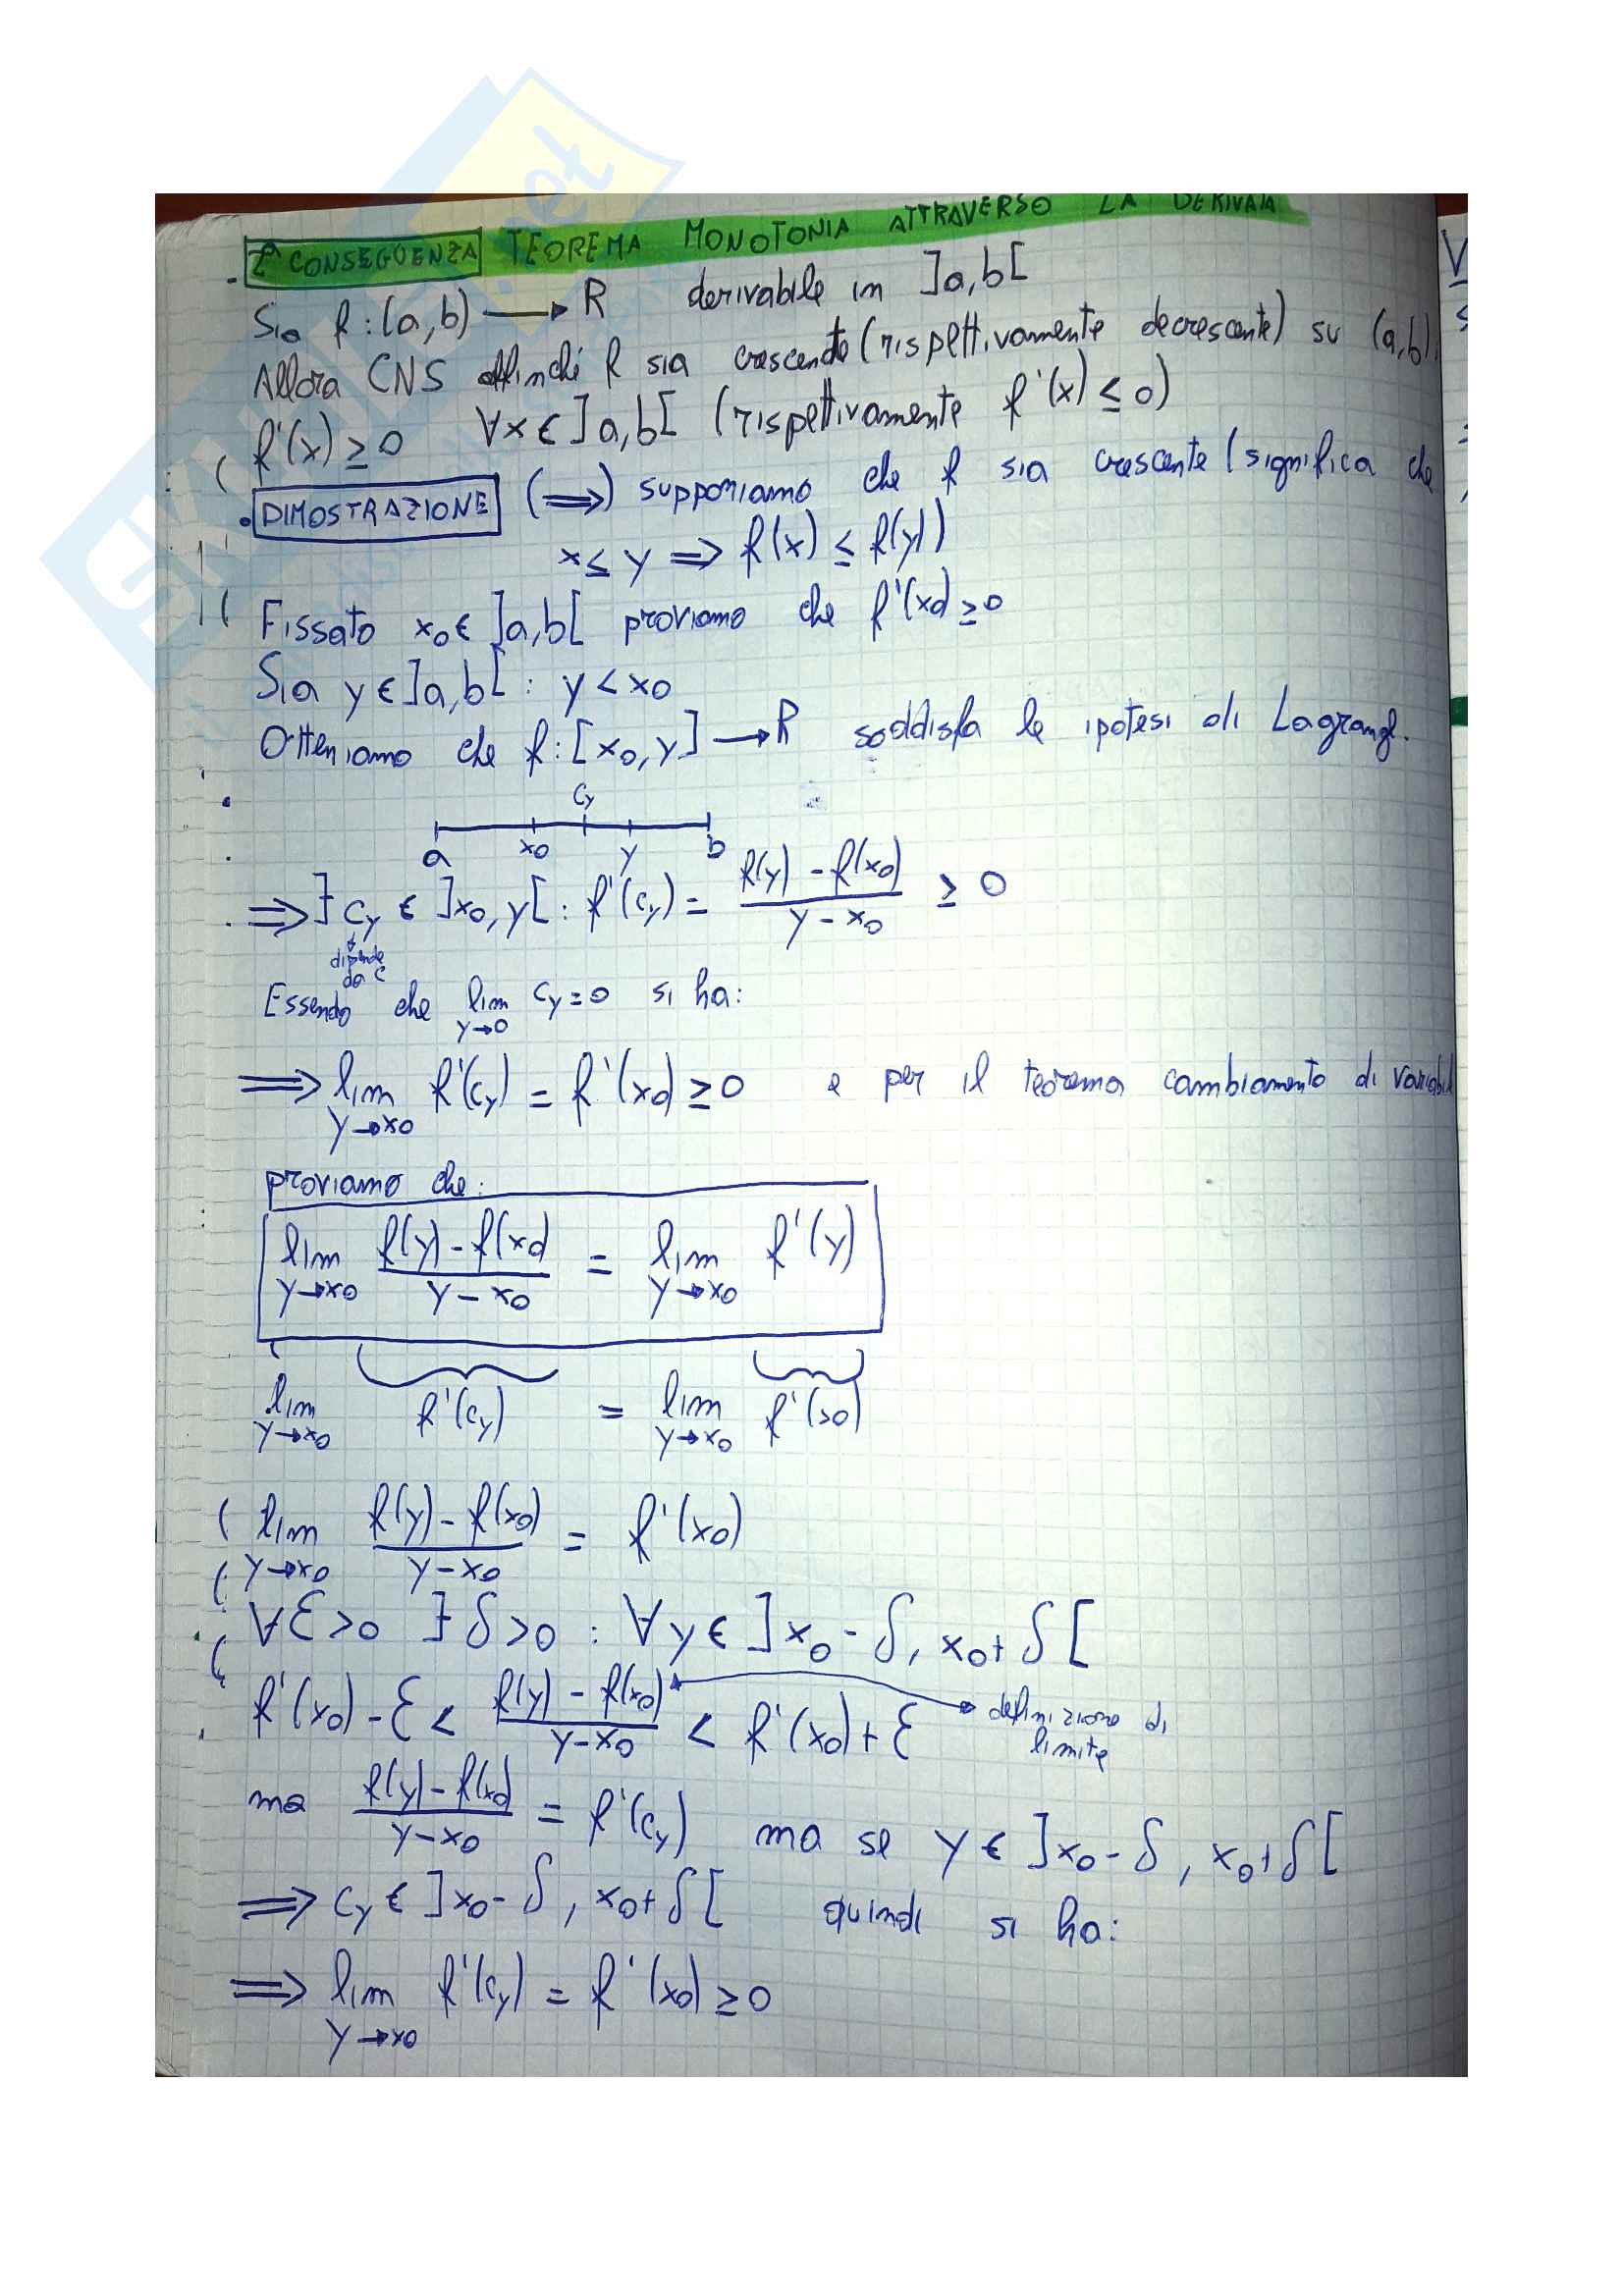 2ª CONSEGUENZA TEOREMA MONOTONIA ATTRAVERSO LA DERIVATA
Sia f:(a,b) → R derivabile in ]a,b[
Allora CNS affinché f sia crescente (rispettivamente decrescente) su (a,b)
f'(x) ≥ 0 ∀x ∈ ]a,b[ (rispettivamente f'(x) ≤ 0)
DIMOSTRAZIONE (⟹) supponiamo che f sia crescente (significa che
x ≤ y ⟹ f(x) ≤ f(y))
Fissato x0 ∈ ]a,b[ proviamo che f'(x0) ≥ 0
Sia y ∈ ]a,b[ : y < x0
Otteniamo che f:[x0,y] → R soddisfa le ipotesi di Lagrang.
cy
a x0 y b
⟹ ∃ cy ∈ ]x0,y[ : f'(cy) = f(y) - f(x0) / y - x0 ≥ 0
dipende
da c
Essendo che lim y→0 cy = 0 si ha:
⟹ lim y→x0 f'(cy) = f'(x0) ≥ 0 e per il teorema cambiamento di variabil
proviamo che:
lim y→x0 f(y) - f(x0) / y - x0 = lim y→x0 f'(y)
lim y→x0 f'(cy) = lim y→x0 f'(x0)
lim y→x0 f(y) - f(x0) / y - x0 = f'(x0)
∀ε>0 ∃ δ>0 : ∀y ∈ ]x0 - δ, x0 + δ[
f'(x0) - ε < f(y) - f(x0) / y - x0 < f'(x0) + ε definizione di
limite
ma f(y) - f(x0) / y - x0 = f'(cy) ma se y ∈ ]x0 - δ, x0 + δ[
⟹ cy ∈ ]x0 - δ, x0 + δ[ quindi si ha:
⟹ lim y→x0 f'(cy) = f'(x0) ≥ 0